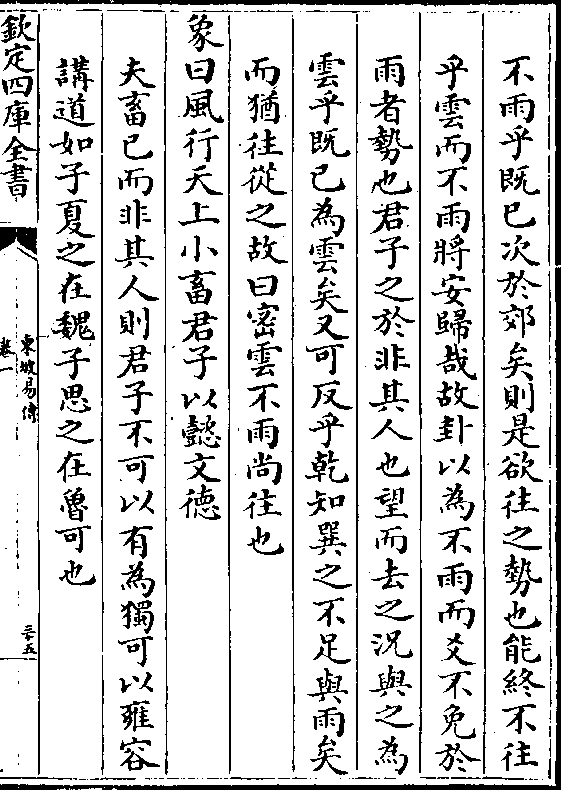 不雨乎既已次於郊矣則是欲往之勢也能終不往
乎雲而不雨將安歸哉故卦以為不雨而爻不免於
雨者勢也君子之於非其人也望而去之況與之為
雲乎既已為雲矣又可反乎乾知巽之不足與雨矣
而猶往從之故曰密雲不雨尚往也
象曰風行天上小畜君子以懿文德
夫畜已而非其人則君子不可以有為獨可以雍容
講道如子夏之在魏子思之在魯可也
欽定四庫全書
東坡易傳
卷一
三十五